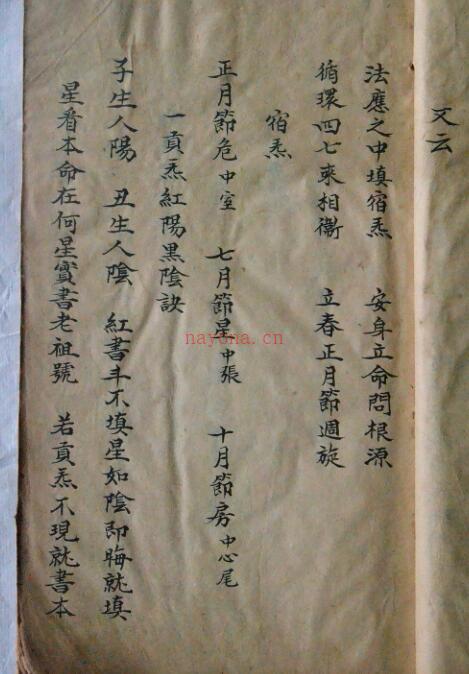 又云
法應之中填宿炁　安身立命問根源
循環四七來相衛　立春正月節週旋
宿炁
正月節危中室　七月節星中張　十月節房中心尾
一貢炁紅陽黑陰訣
子生人陽　丑生人陰　紅書斗不填星如陰即晦就填
星看本命在何星實書老祖號　若貢炁不現就書本
nayona.cn